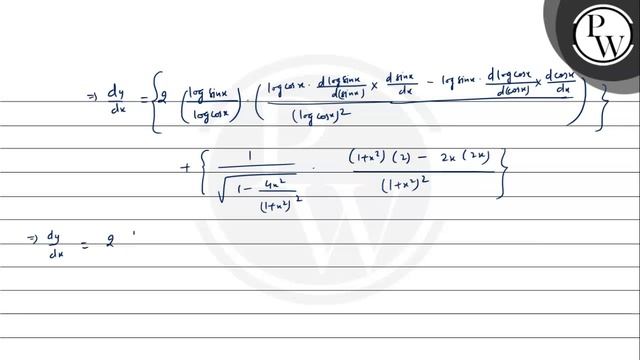 ⇒ dy/dx = { 2 (log sinx / log cosx) · ( (log cosx · d log sinx / d(sinx) × d sinx / dx − log sinx · d log cosx / d(cosx) × d cosx / dx) / (log cosx)² ) }
+ { 1 / √(1 − 4x² / (1+x²)²) · ((1+x²)(2) − 2x(2x)) / (1+x²)² }
⇒ dy/dx = 2
PW